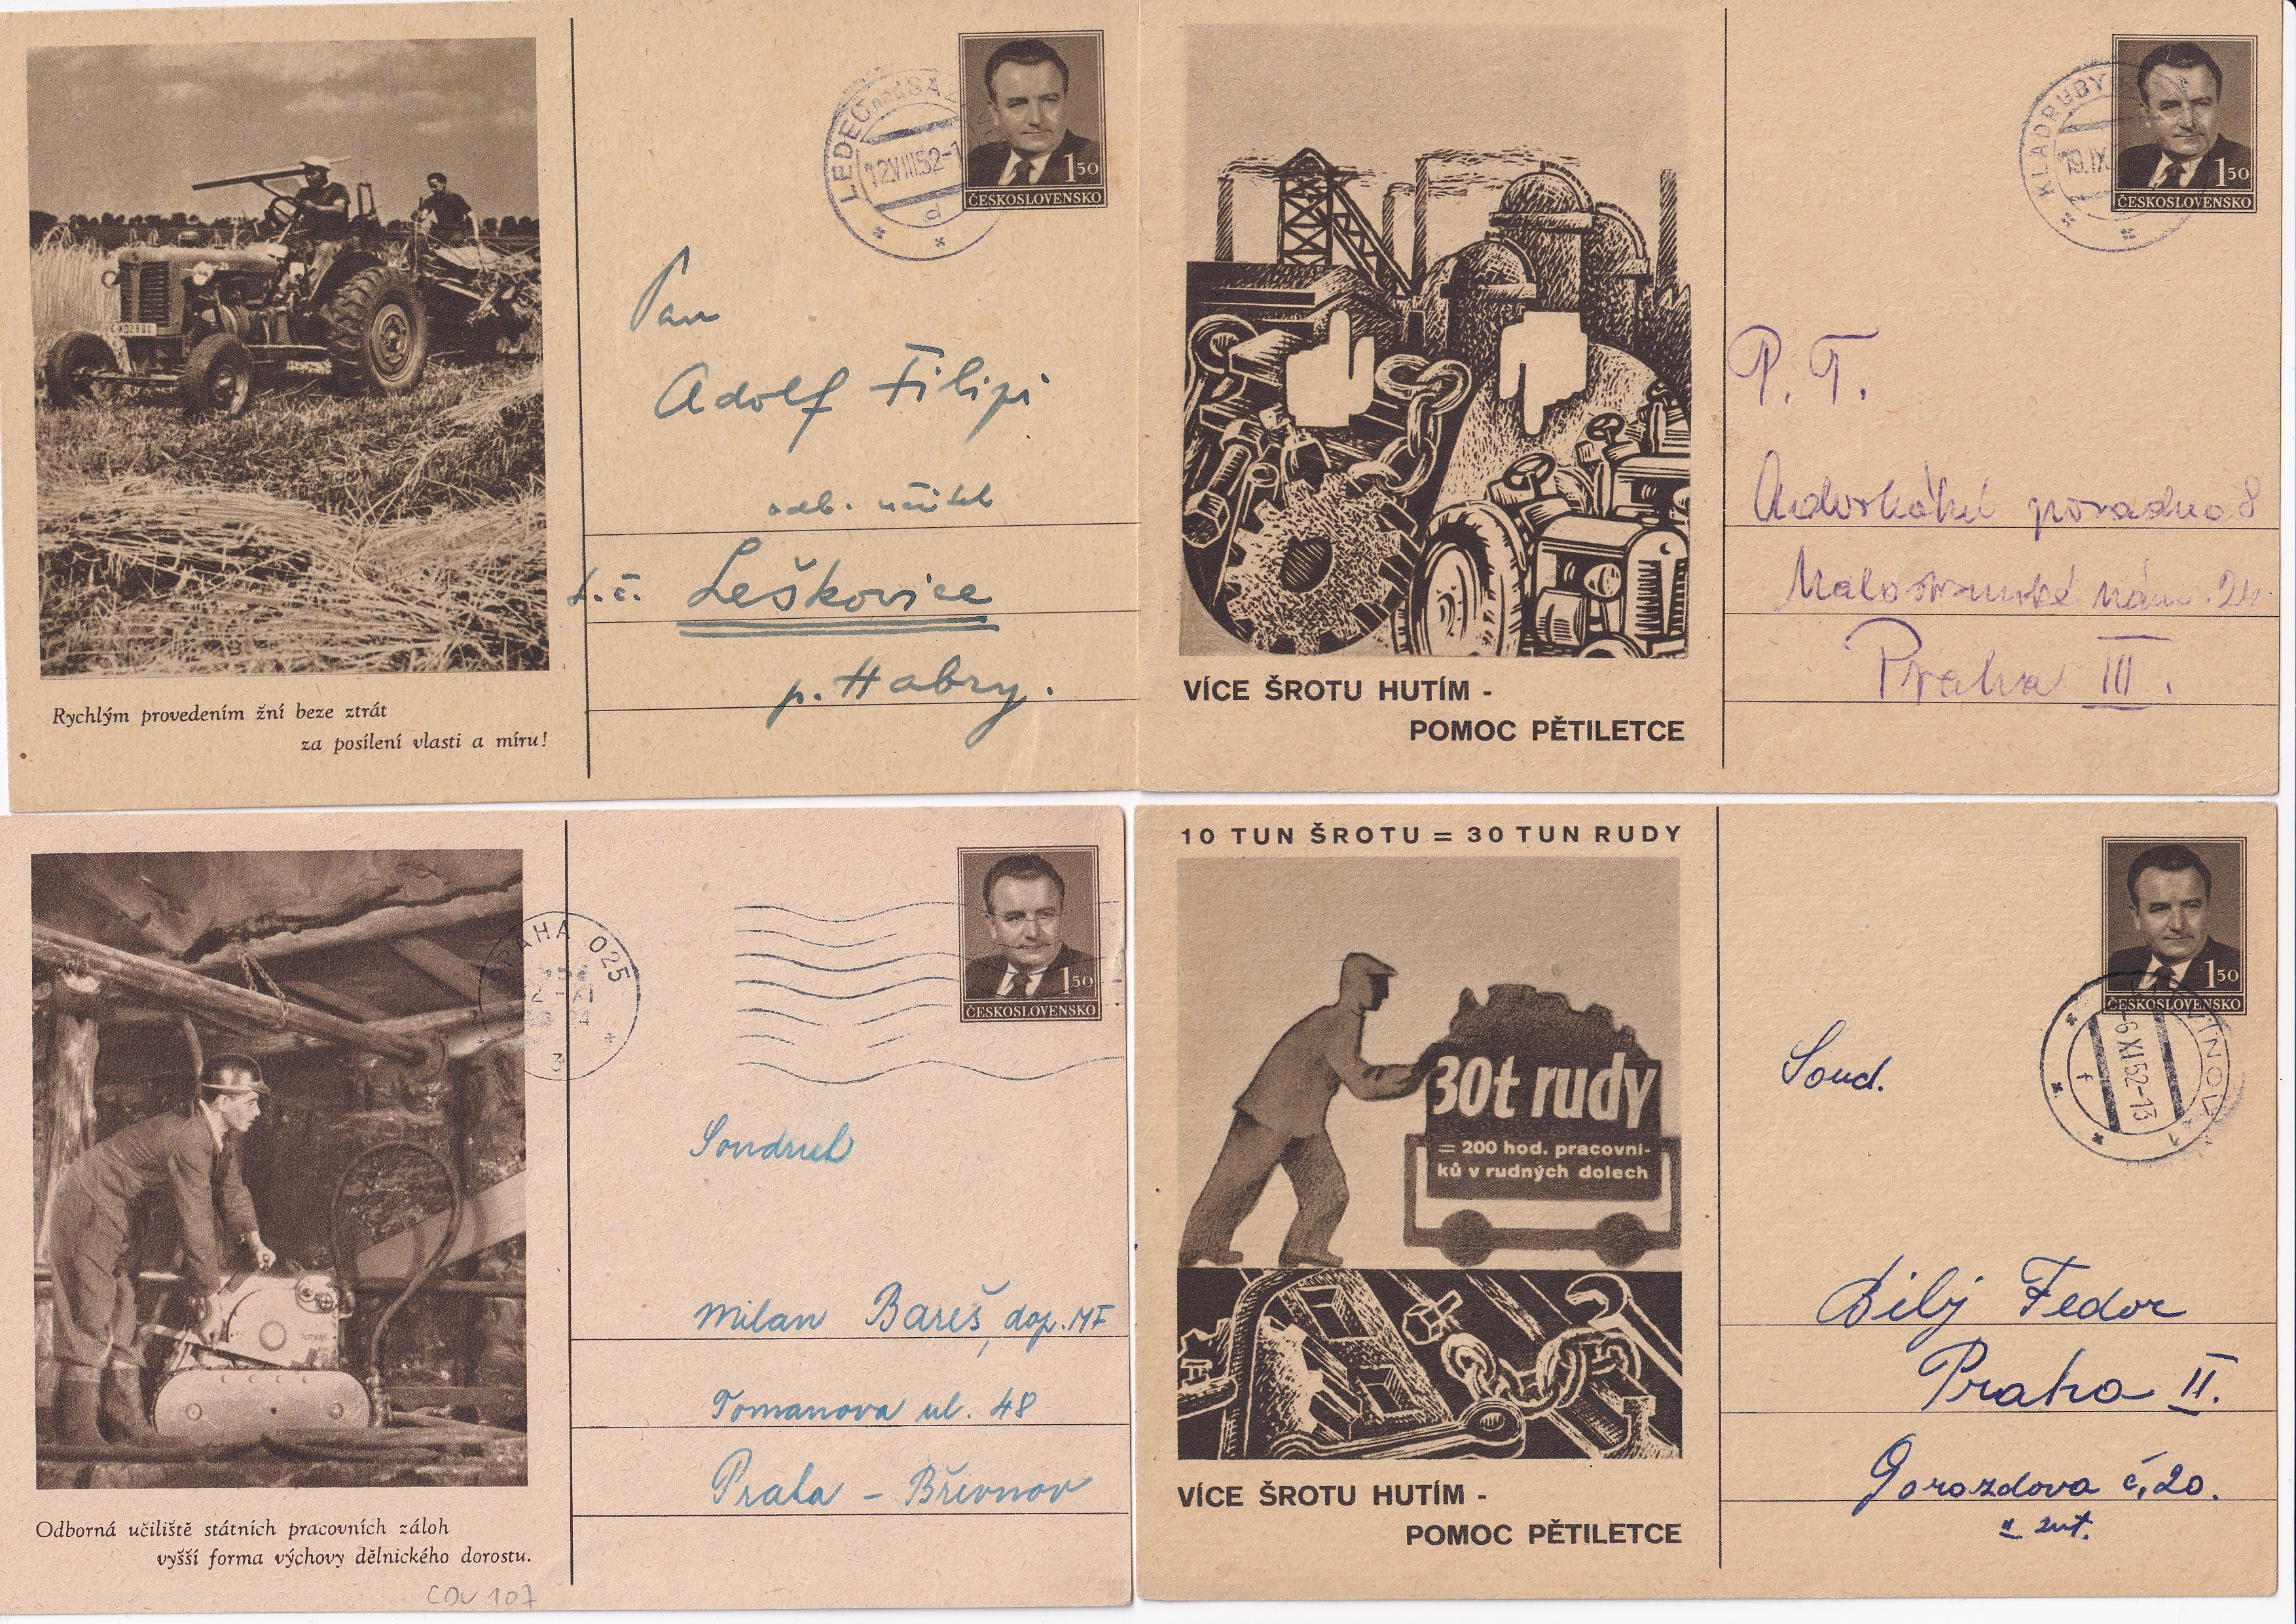 LEDEČ nad SÁZ
12 VIII 52-1
d
1 50
ČESKOSLOVENSKO
Pan
Adolf Filipi
odb. učitel
t.č. Leškovice
p. Habry.
Rychlým provedením žní beze ztrát
za posílení vlasti a míru!
KLADRUBY
19.IX
1 50
ČESKOSLOVENSKO
P. T.
poradna 8
Malostranské nám. 24
Praha III.
VÍCE ŠROTU HUTÍM -
POMOC PĚTILETCE
PRAHA 025
3
1 50
ČESKOSLOVENSKO
Soudruh
Milan Bareš, dop. MF
Tomanova ul. 48
Praha - Břevnov
Odborná učiliště státních pracovních záloh
vyšší forma výchovy dělnického dorostu.
CDV 107
10 TUN ŠROTU = 30 TUN RUDY
30t rudy
= 200 hod. pracovní-
ků v rudných dolech
VÍCE ŠROTU HUTÍM -
POMOC PĚTILETCE
1 50
ČESKOSLOVENSKO
-6 XI 52-13
f
Soud.
Bilý Fedor
Praha II.
Gorazdova č. 20.